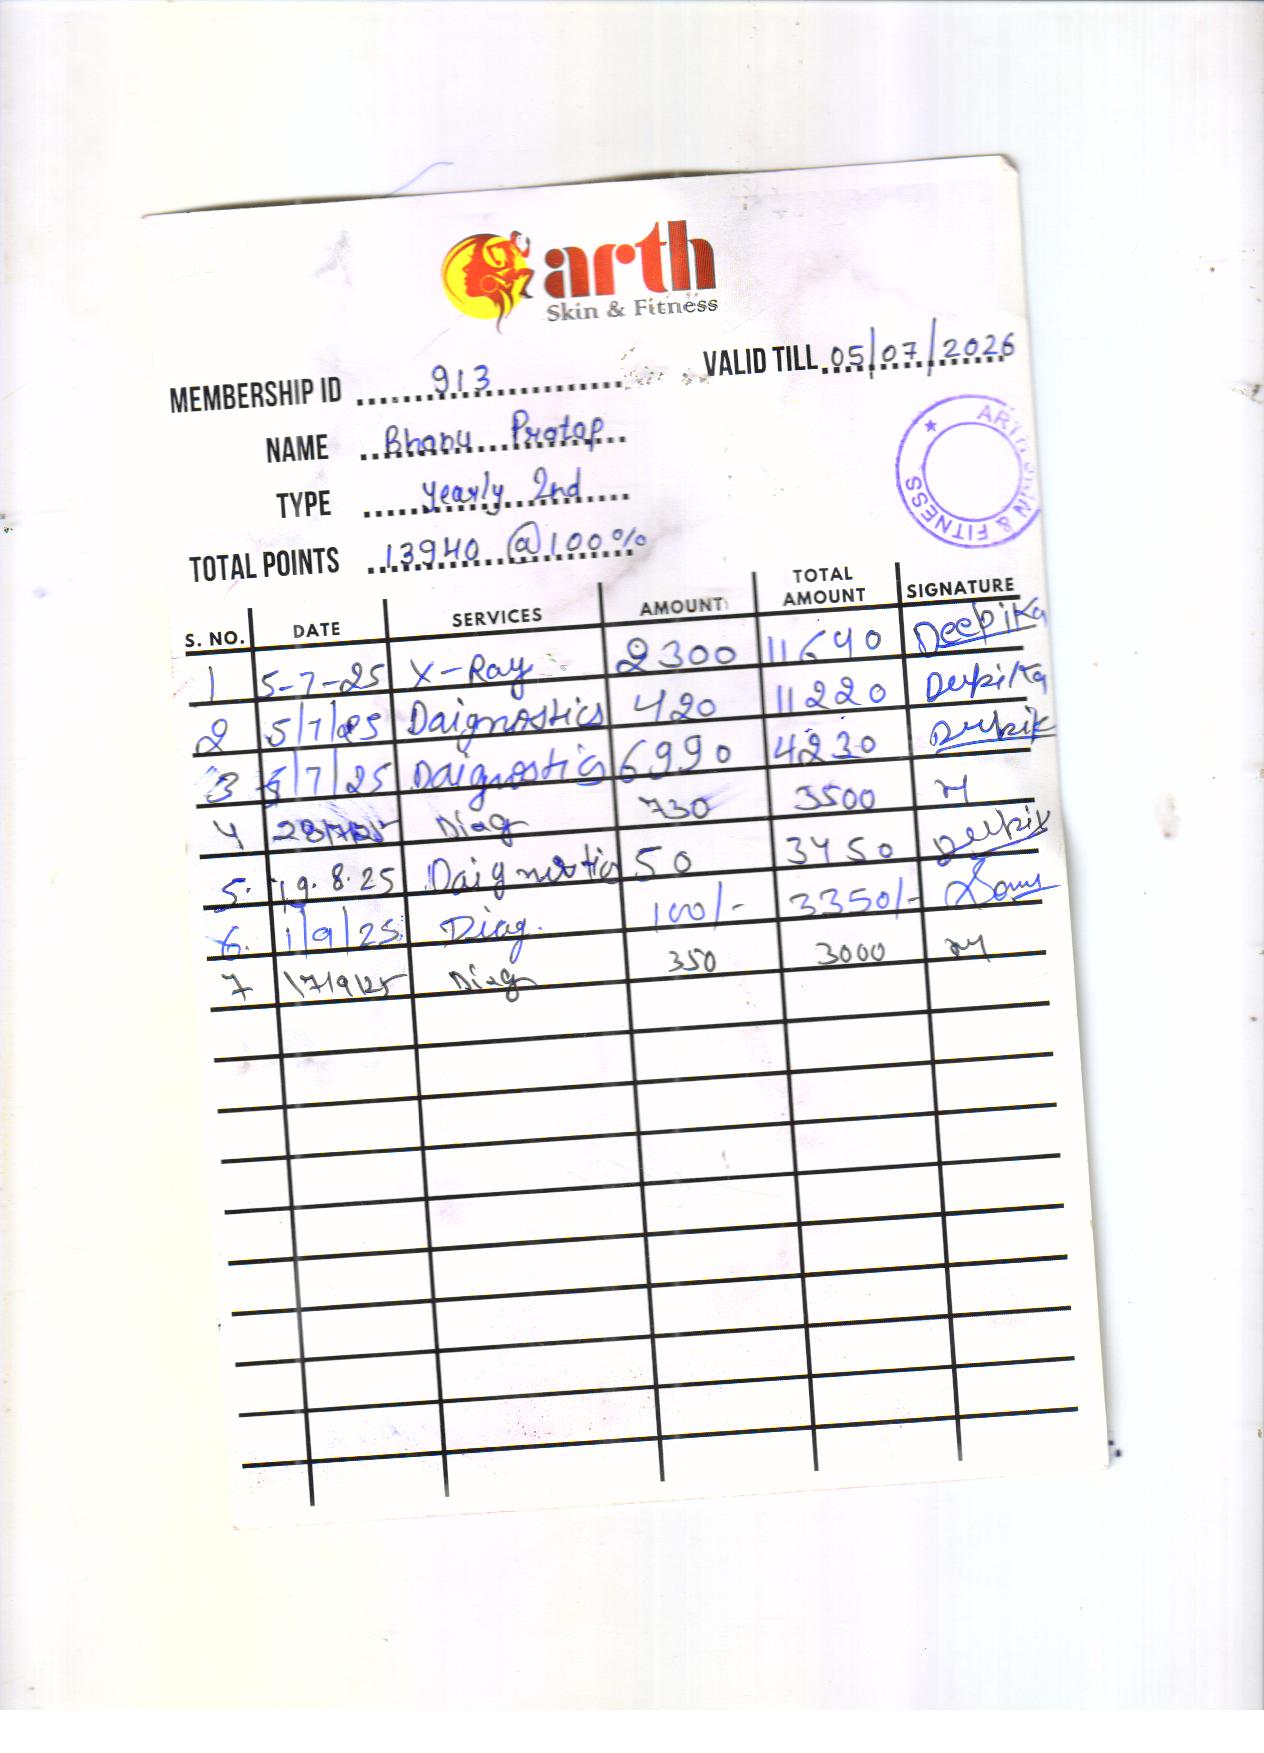 arth
Skin & Fitness
MEMBERSHIP ID 913 VALID TILL 05/07/2026
NAME Bhanu Pratap
TYPE Yearly 2nd
TOTAL POINTS 13940 @100%
ARTH SKIN & FITNESS
S. NO. DATE SERVICES AMOUNT TOTAL AMOUNT SIGNATURE
1 5-7-25 X-Ray 2300 11640 Deepika
2 5/7/25 Daignostics 420 11220 Deepika
3 5/7/25 Daignostics 6990 4230 Deepik
4 28/7/25 Diag 730 3500
5. 19.8.25 Daignostics 50 3450
6. 1/9/25 Diag. 100/- 3350/-
7 17/9/25 Diag 350 3000